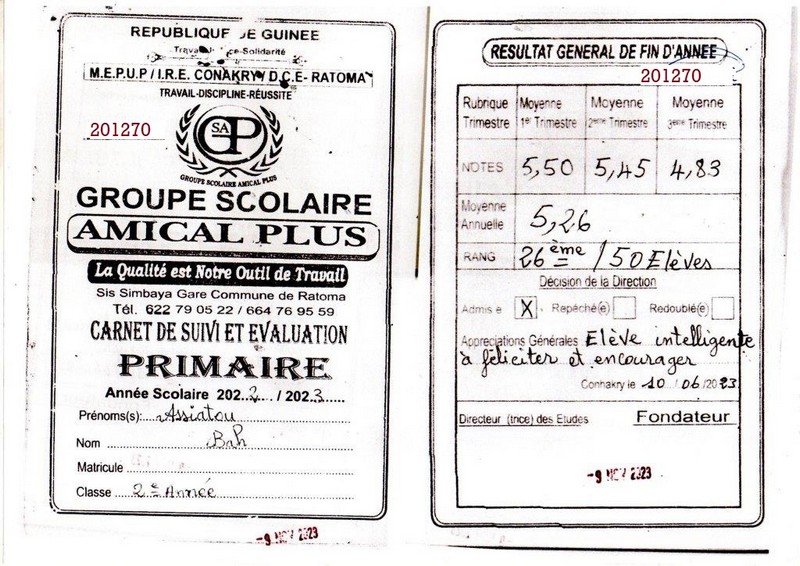 REPUBLIQUE DE GUINEE
M.E.P.U.P / I.R.E. CONAKRY/ D.C.E- RATOMA
TRAVAIL-DISCIPLINE-RÉUSSITE
201270
SA
GP
GROUPE SCOLAIRE AMICAL PLUS
GROUPE SCOLAIRE
AMICAL PLUS
La Qualité est Notre Outil de Travail
Sis Simbaya Gare Commune de Ratoma
Tél. 622 79 05 22 / 664 76 95 59
CARNET DE SUIVI ET EVALUATION
PRIMAIRE
Année Scolaire 2022 / 2023
Prénoms(s): Assiatou
Nom Bah
Matricule
Classe 2e Année
-9 NOV 2023
RESULTAT GENERAL DE FIN D'ANNEE
201270
Rubrique Trimestre Moyenne 1er Trimestre Moyenne 2ème Trimestre Moyenne 3ème Trimestre
NOTES 5,50 5,45 4,83
Moyenne Annuelle 5,26
RANG 26ème / 50 Elèves
Décision de la Direction
Admis e X Repêché(e) Redoublé(e)
Appreciations Générales Elève intelligente
à féliciter et encourager
Connakry le 10 / 06 /2023
Directeur (trice) des Etudes Fondateur
-9 NOV 2023